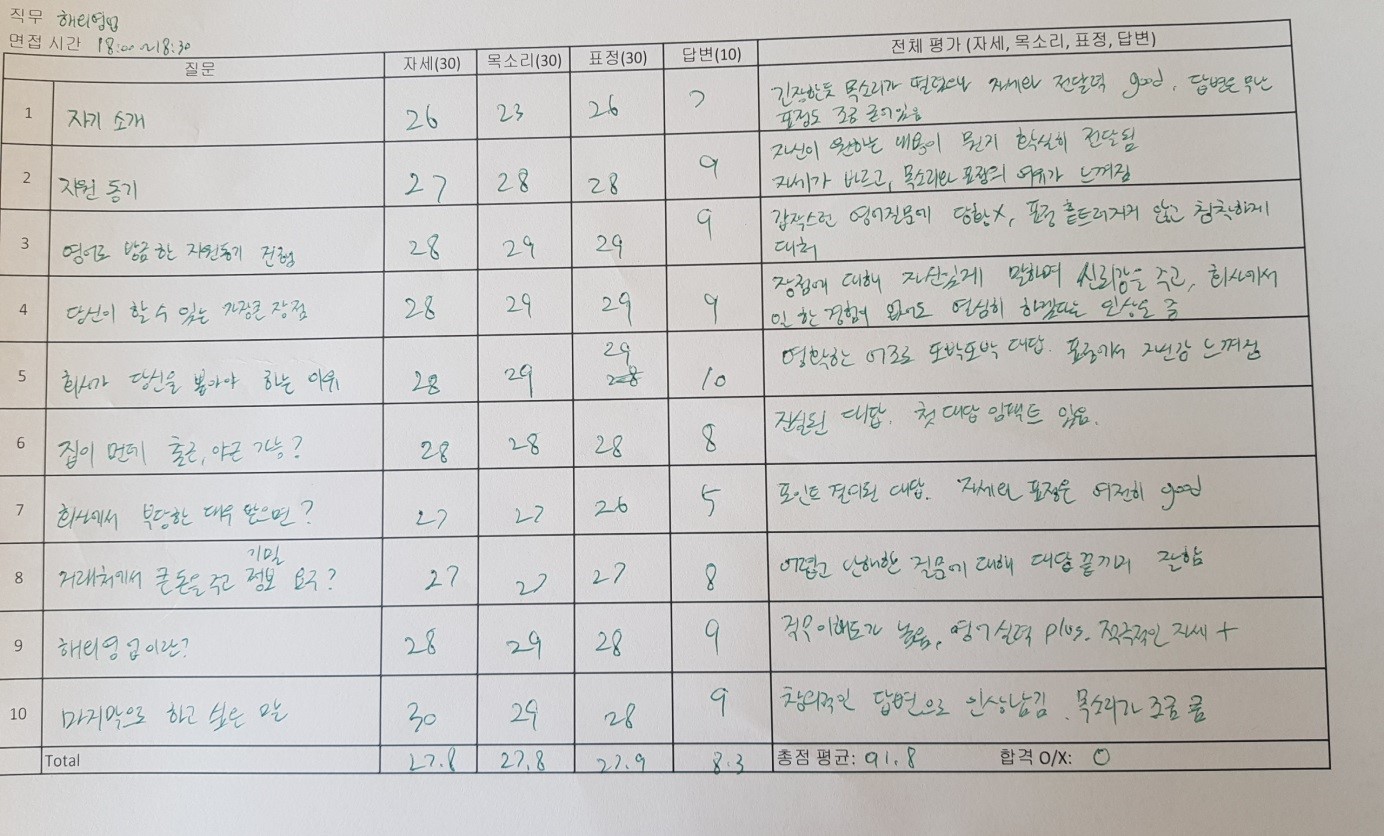 직무 해외영업
면접 시간 18:00~18:30
질문 자세(30) 목소리(30) 표정(30) 답변(10) 전체 평가 (자세, 목소리, 표정, 답변)
1 자기 소개 26 23 26 7 긴장한듯 목소리가 떨렸으나 자세와 전달력 good. 답변은 무난
표정도 조금 굳어있음
2 지원 동기 27 28 28 9 자신이 원하는 내용이 뭔지 확실히 전달됨
자세가 바르고, 목소리와 표정의 여유가 느껴짐
3 영어로 방금 한 지원동기 진행 28 29 29 9 갑작스런 영어질문에 당황X, 표정 흩트러지지 않고 침착하게
대처
4 당신이 할 수 있는 가장큰 장점 28 29 29 9 장점에 대해 자신있게 말하며 신뢰감을 주고, 회사에서
일 한 경험이 없어도 열심히 하겠다는 인상을 줌
29
5 회사가 당신을 뽑아야 하는 이유 28 29 28 10 명확하는 어조로 또박또박 대답. 표정에서 자신감 느껴짐
6 집이 먼데 출근, 야근 가능? 28 28 28 8 진실된 대답. 첫 대답 임팩트 있음.
7 회사에서 부당한 대우 받으면? 27 27 26 5 포인트 결여된 대답. 자세와 표정은 여전히 good
기밀
8 거래처에서 큰돈을 주고 정보 요구? 27 27 27 8 어렵고 난해한 질문에 대해 대답 끝까지 잘함
9 해외영업이란? 28 29 28 9 직무이해도가 높음, 영어실력 plus. 적극적인 자세 +
10 마지막으로 하고 싶은 말 30 29 28 9 창의적인 답변으로 인상남김. 목소리가 조금 큼
Total 27.8 27.8 27.9 8.3 총점 평균: 91.8 합격 O/X: O